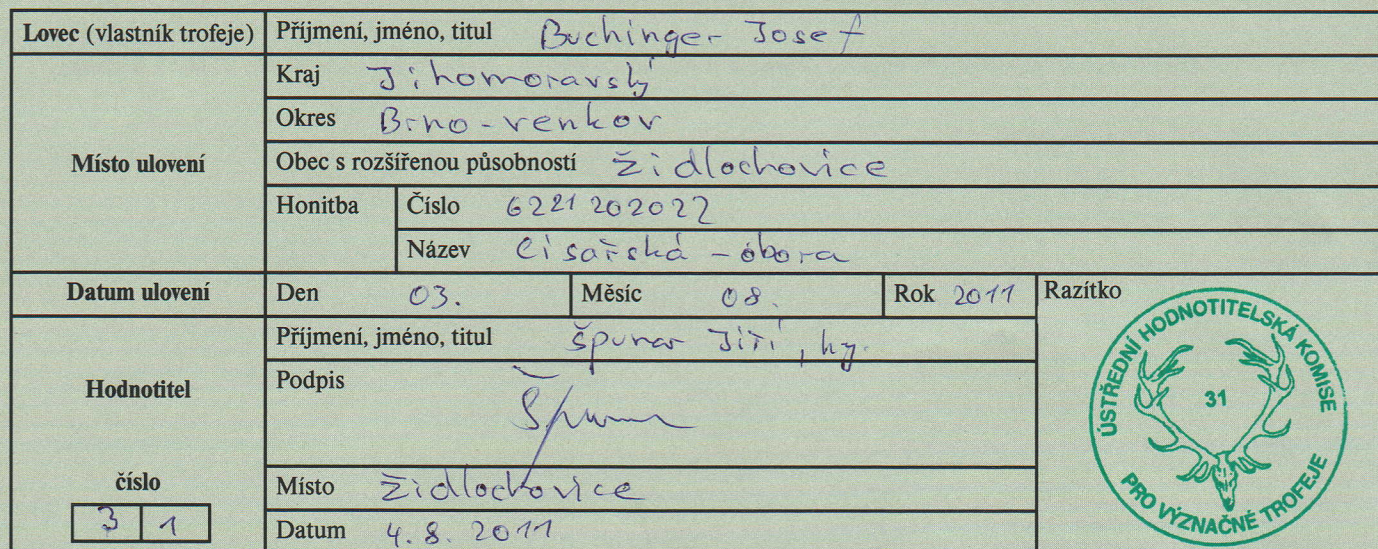 Lovec (vlastník trofeje) Příjmení, jméno, titul Buchinger Josef
Kraj Jihomoravský
Okres Brno-venkov
Místo ulovení
Obec s rozšířenou působností Židlochovice
Honitba Číslo 6221202022
Název Císařská - obora
Datum ulovení Den 03. Měsíc 08. Rok 2011 Razítko
Příjmení, jméno, titul Špunar Jiří,
Hodnotitel
Podpis
číslo
3 1
Místo Židlochovice
Datum 4.8.2011
ÚSTŘEDNÍ HODNOTITELSKÁ KOMISE
31
PRO VÝZNAČNÉ TROFEJE